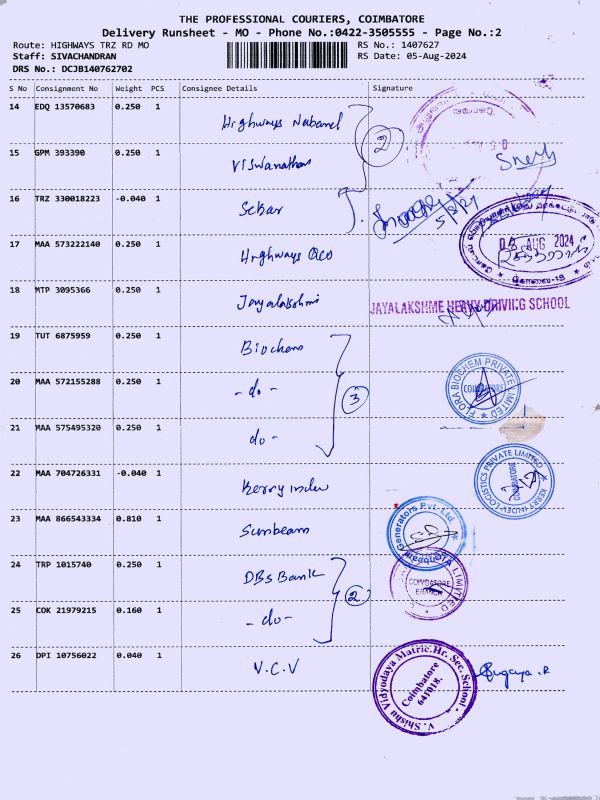 THE PROFESSIONAL COURIERS, COIMBATORE
Delivery Runsheet - MO - Phone No.:0422-3505555 - Page No.:2
Route: HIGHWAYS TRZ RD MO RS No.: 1407627
Staff: SIVACHANDRAN RS Date: 05-Aug-2024
DRS No.: DCJB140762702
S No Consignment No Weight PCS Consignee Details Signature
14 EDQ 13570683 0.250 1 Highways
15 GPM 393390 0.250 1 Viswanathan
2
16 TRZ 330018223 -0.040 1 Sekar
5/8/24
17 MAA 573222140 0.250 1 Highways
AUG 2024
கோவை-18
18 MTP 3095366 0.250 1 Jayalakshmi
JAYALAKSHME HEAVY DRIVING SCHOOL
19 TUT 6875959 0.250 1 Biochem
20 MAA 572155288 0.250 1 - do -
3
FLORA BIOCHEM PRIVATE LIMITED
COIMBATORE
21 MAA 575495320 0.250 1 - do -
22 MAA 704726331 -0.040 1 Kerry Indev
KERRY INDEV LOGISTICS PRIVATE LIMITED
COIMBATORE
23 MAA 866543334 0.810 1 Sunbeam
Generators Pvt. Ltd.
24 TRP 1015740 0.250 1 DBS Bank
COIMBATORE
BRANCH
LIMITED
25 COK 21979215 0.160 1 - do -
2
26 DPI 10756022 0.040 1 V.C.V
V. Shishu Vidyodaya Matric. Hr. Sec. School
Coimbatore
641018.